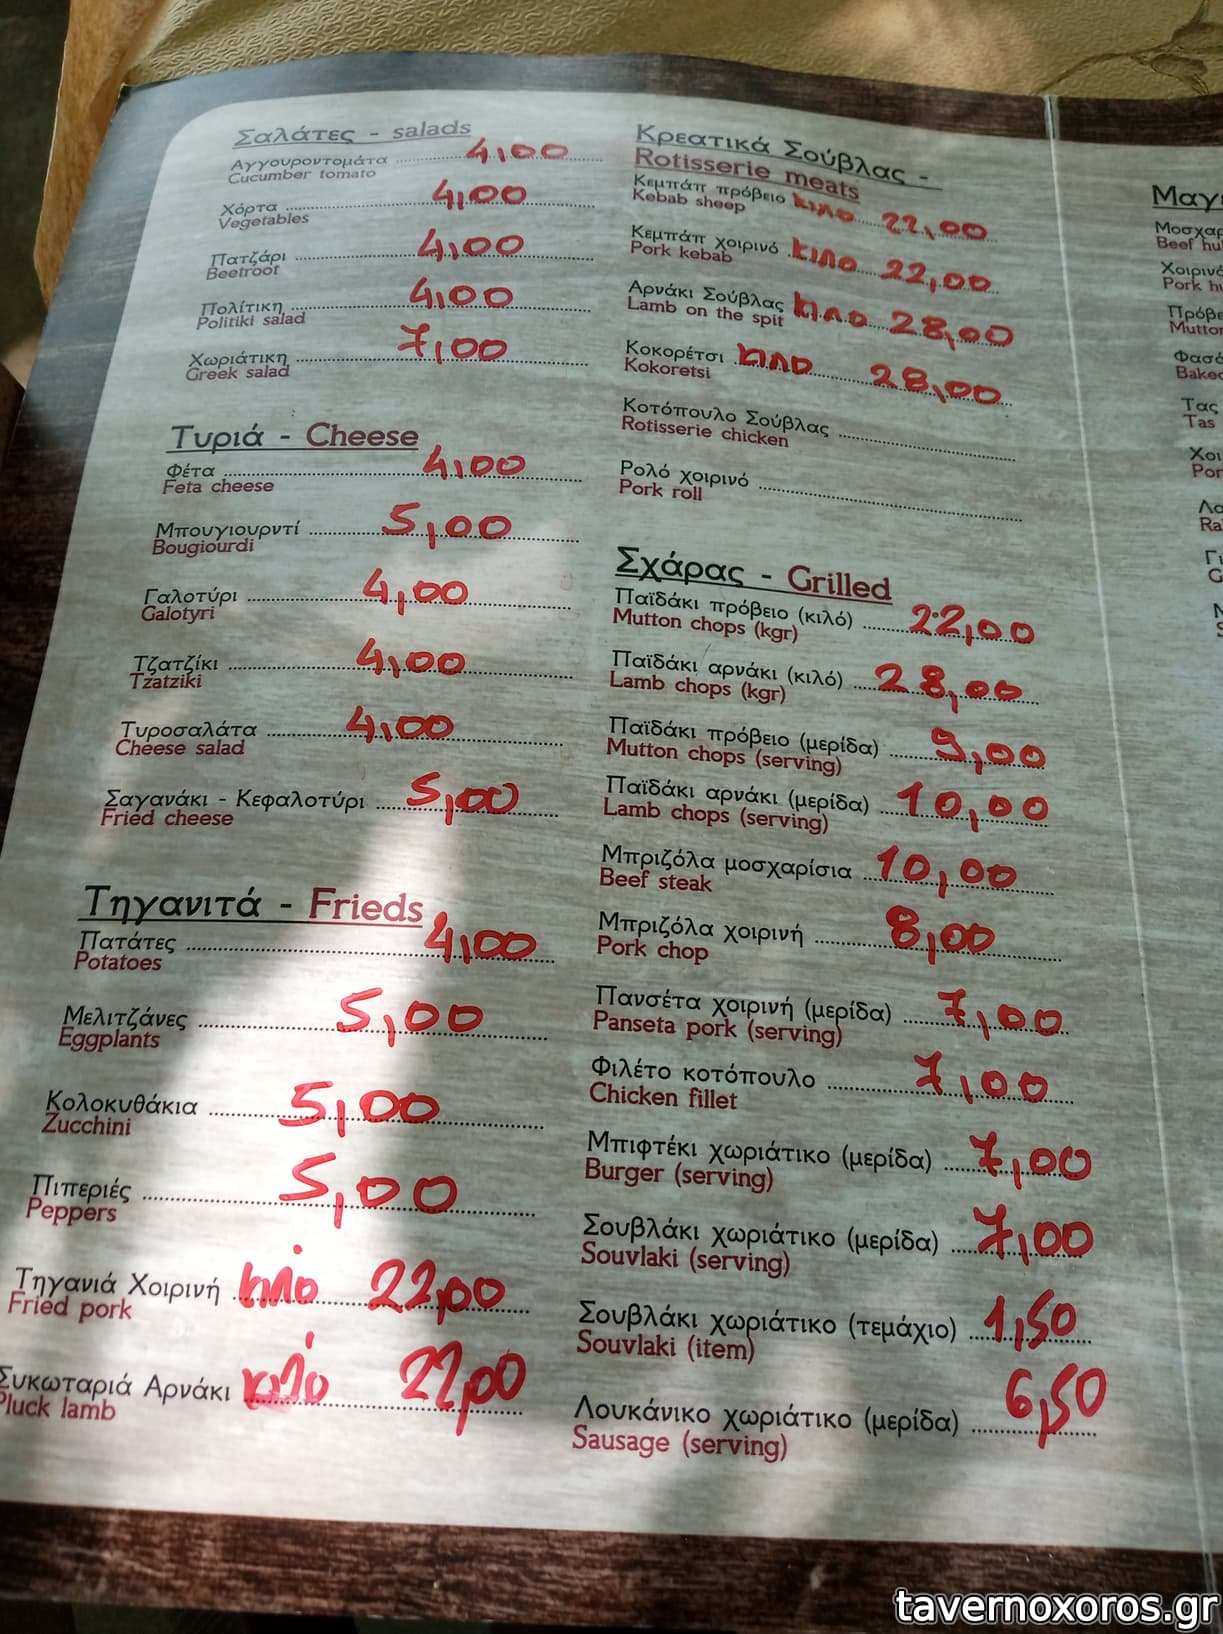 Σαλάτες - salads
Αγγουροντομάτα 4,00
Cucumber tomato
Χόρτα 4,00
Vegetables
Πατζάρι 4,00
Beetroot
Πολίτικη 4,00
Politiki salad
Χωριάτικη 7,00
Greek salad
Τυριά - Cheese
Φέτα 4,00
Feta cheese
Μπουγιουρντί 5,00
Bougiourdi
Γαλοτύρι 4,00
Galotyri
Τζατζίκι 4,00
Tzatziki
Τυροσαλάτα 4,00
Cheese salad
Σαγανάκι - Κεφαλοτύρι 5,00
Fried cheese
Τηγανιτά - Frieds
Πατάτες 4,00
Potatoes
Μελιτζάνες 5,00
Eggplants
Κολοκυθάκια 5,00
Zucchini
Πιπεριές 5,00
Peppers
Τηγανιά Χοιρινή κιλό 22,00
Fried pork
Συκωταριά Αρνάκι κιλό 22,00
Pluck lamb
Κρεατικά Σούβλας -
Rotisserie meats
Κεμπάπ πρόβειο κιλο 22,00
Kebab sheep
Κεμπάπ χοιρινό κιλο 22,00
Pork kebab
Αρνάκι Σούβλας κιλο 28,00
Lamb on the spit
Κοκορέτσι κιλο 28,00
Kokoretsi
Κοτόπουλο Σούβλας
Rotisserie chicken
Ρολό χοιρινό
Pork roll
Σχάρας - Grilled
Παϊδάκι πρόβειο (κιλό) 22,00
Mutton chops (kgr)
Παϊδάκι αρνάκι (κιλό) 28,00
Lamb chops (kgr)
Παϊδάκι πρόβειο (μερίδα) 9,00
Mutton chops (serving)
Παϊδάκι αρνάκι (μερίδα) 10,00
Lamb chops (serving)
Μπριζόλα μοσχαρίσια 10,00
Beef steak
Μπριζόλα χοιρινή 8,00
Pork chop
Πανσέτα χοιρινή (μερίδα) 7,00
Panseta pork (serving)
Φιλέτο κοτόπουλο 7,00
Chicken fillet
Μπιφτέκι χωριάτικο (μερίδα) 7,00
Burger (serving)
Σουβλάκι χωριάτικο (μερίδα) 7,00
Souvlaki (serving)
Σουβλάκι χωριάτικο (τεμάχιο) 1,50
Souvlaki (item)
Λουκάνικο χωριάτικο (μερίδα) 6,50
Sausage (serving)
Beef
Pork
Τας
Tas
tavernoxoros.gr